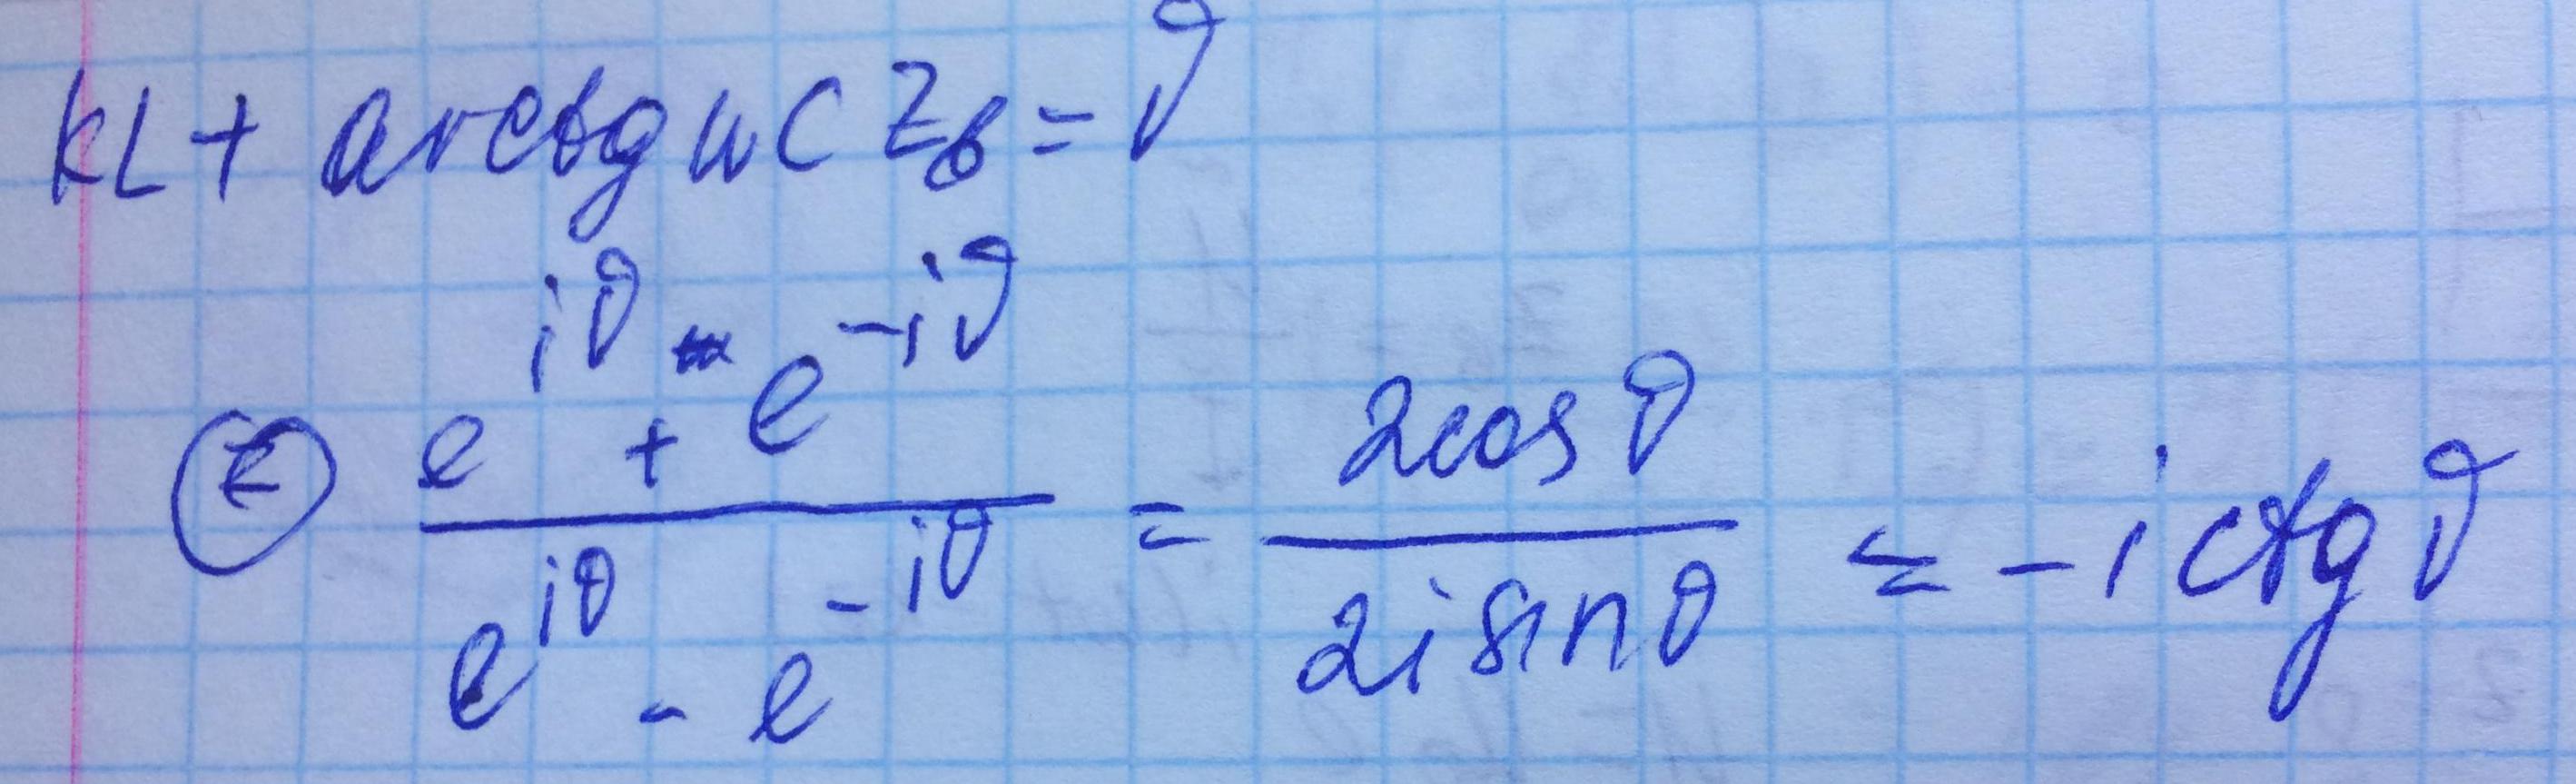 kL + arctg ωC Zв = ϑ
⊜ (e^{iϑ} + e^{-iϑ}) / (e^{iϑ} - e^{-iϑ}) = 2cosϑ / 2i sinϑ = -i ctg ϑ